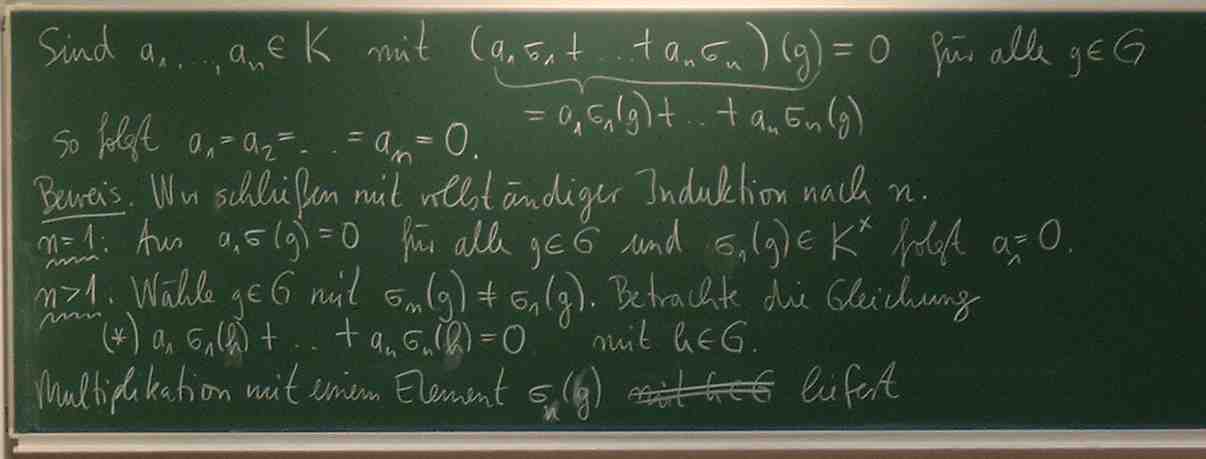 Sind a₁, ..., aₙ ∈ K mit (a₁σ₁ + ... + aₙσₙ)(g) = 0 für alle g ∈ G
= a₁σ₁(g) + .. + aₙσₙ(g)
so folgt a₁ = a₂ = ... = aₙ = 0.
Beweis. Wir schließen mit vollständiger Induktion nach n.
n=1: Aus a₁σ(g) = 0 für alle g ∈ G und σ₁(g) ∈ K^× folgt a₁ = 0.
n>1. Wähle g ∈ G mit σₙ(g) ≠ σ₁(g). Betrachte die Gleichung
(*) a₁σ₁(h) + .. + aₙσₙ(h) = 0 mit h ∈ G.
Multiplikation mit einem Element σₙ(g) mit h ∈ G liefert